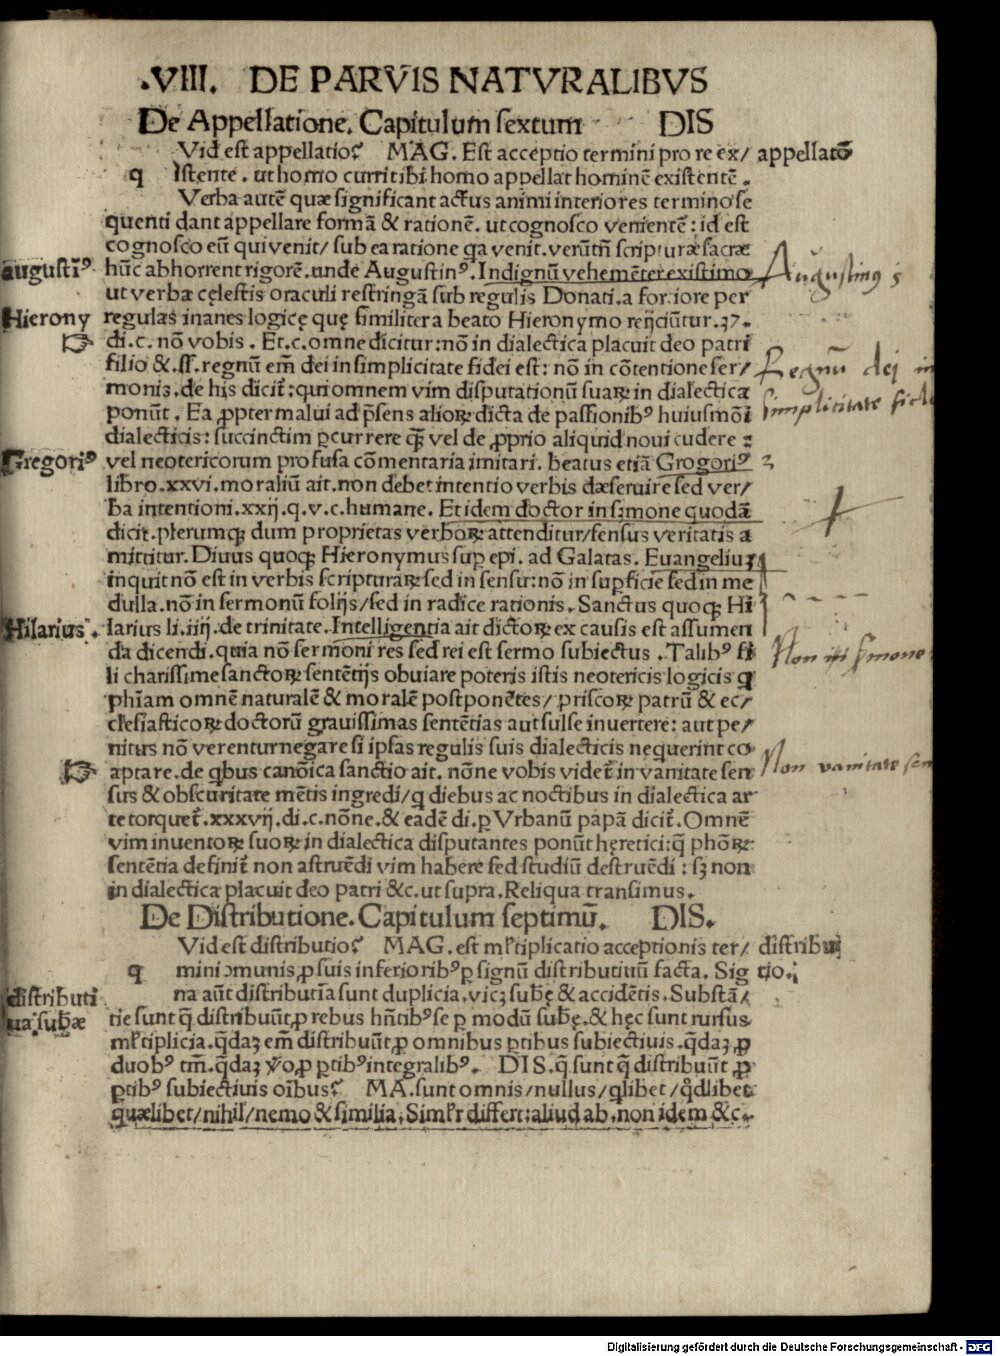 .VIII. DE PARVIS NATVRALIBVS
De Appellatione. Capitulum sextum DIS
Vid est appellatio? MAG. Est acceptio termini pro re ex/ appellatō
q istente. ut homo currit ibi homo appellat hominē existentē.
Verba autē quæ significant actus animi interiores termino se
quenti dant appellare formā & rationē. ut cognosco venientē: id est
cognosco eū qui venit/ sub ea ratione qa venit. verūtñ scripturæ sacræ
augustiꝰ hūc abhorrent rigorē. unde Augustinꝰ. Indignū vehemēter existimo Augustinus
ut verba cęlestis oraculi restringā sub regulis Donati. a fortiore per
Hierony regulas inanes logicę quę similiter a beato Hieronymo reijciūtur. 37.
di. c. nō vobis. Et. c. omne dicitur: nō in dialectica placuit deo patri
filio & .ss. regnū em̄ dei in simplicitate fidei est: nō in cōtentione ser/ Regnū dei in
monis. de his dicit̄: qui omnem vim disputationū suaꝝ in dialectica simplicitate fide
ponūt. Ea ꝓpter malui ad p̄sens alioꝝ dicta de passionibꝰ huiusmōi
dialecticis: succinctim ꝑcurrere q̄ȝ vel de ꝓprio aliquid noui cudere :
Gregoriꝰ vel neotericorum profusa cōmentaria imitari. beatus etiā Grogoriꝰ
libro. xxvi. moraliū ait. non debet intentio verbis dæseruire sed ver/
ba intentioni. xxij. q. v. c. humane. Et idem doctor in s̄mone quodā
dicit. plerumqȝ dum proprietas verboꝝ attenditur/ sensus veritatis a
mittitur. Diuus quoqȝ Hieronymus suꝑ epi. ad Galatas. Euangeliuȝ
inquit nō est in verbis scripturaꝝ sed in sensu: nō in suꝑficie sed in me
dulla. nō in sermonū folijs/ sed in radice rationis. Sanctus quoqȝ Hi
Hilarius. larius li. iiij. de trinitate. Intelligentia ait dictoꝝ ex causis est assumen
da dicendi. quia nō sermoni res sed rei est sermo subiectus. Talibꝰ fi Non
li charissime sanctoꝝ sentētijs obuiare poteris istis neotericis logicis q
phiam omnē naturalē & moralē postponētes/ priscoꝝ patrū & ec/
clesiasticoꝝ doctorū grauissimas sentētias aut sulse inuertere: aut pe/
nitus nō verentur negare si ipsas regulis suis dialecticis nequerint co
aptare. de qbus canōica sanctio ait. nōne vobis videt̄ in vanitate sen Non vanitate sen
sus & obscuritate mētis ingredi/ q diebus ac noctibus in dialectica ar
te torquet̄. xxxvij. di. c. nōne. & eadē di. ꝑ Vrbanū papā dicit̄. Omnē
vim inuentoꝝ suoꝝ in dialectica disputantes ponūt hęretici: q̄ phōꝝ
sentētia definit̄ non astruēdi vim habere sed studiū destruēdi: sȝ non
in dialectica placuit deo patri &c. ut supra. Reliqua transimus.
De Distributione. Capitulum septimū. DIS.
Vid est distributio? MAG. est ml̄tiplicatio acceptionis ter/ distribu
q mini ↄmunis, ꝓ suis inferioribꝰ ꝑ signū distributiuū facta. Sig tio.
distributi na aūt distributīa sunt duplicia. vicȝ subę & accidētis. Substā/
ua subæ tie sunt q̄ distribuūt, ꝓ rebus hn̄tibꝰ se ꝑ modū subę. & hęc sunt rursus
ml̄tiplicia. qdaȝ em̄ distribuūt ꝓ omnibus ꝑtibus subiectiuis. qdaȝ ꝓ
duobꝰ tm̄. qdaȝ v̊o, ꝓ ꝑtibꝰ integralibꝰ. DIS. q̄ sunt q̄ distribuūt ꝓ
ꝑtibꝰ subiectiuis oībus? MA. sunt omnis/ nullus/ qlibet/ qdlibet
quælibet/ nihil/ nemo & similia. Siml̄r differt: aliud ab. non idem &c.